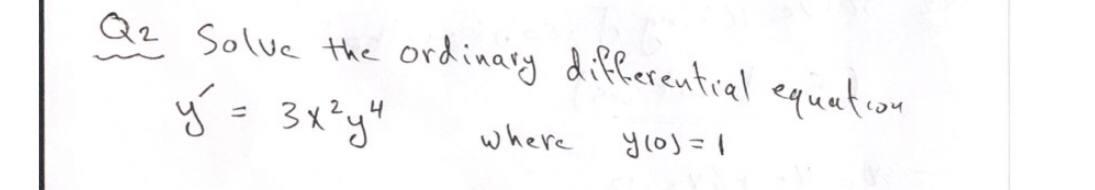 Q2 Solve the ordinary differential equation
y´ = 3x²y⁴ where y(0) = 1